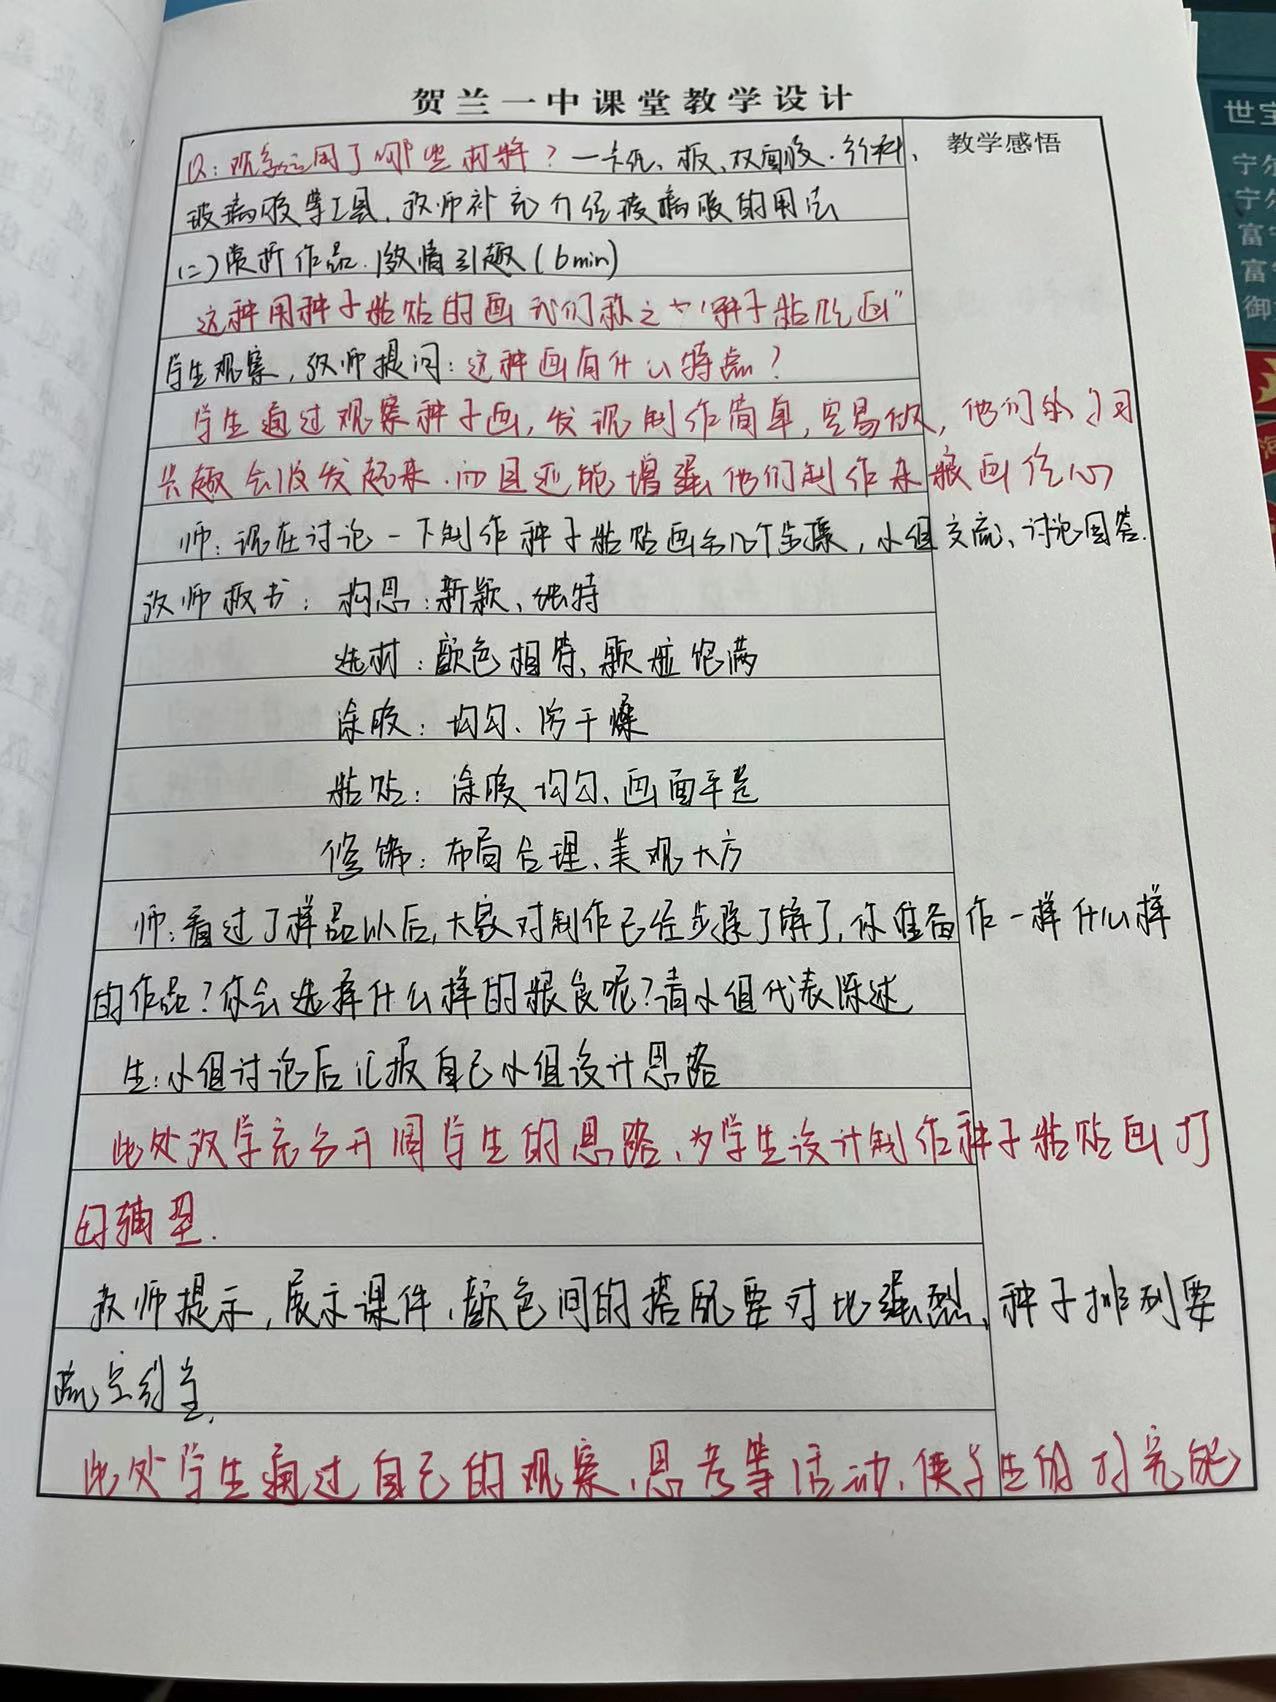 贺兰一中课堂教学设计
教学感悟
Q:观察运用了哪些材料?一卡纸、板、双面胶、
玻璃胶等工具,教师补充介绍玻璃胶的用法
(二)赏析作品,激情引趣(6min)
这种用种子粘贴的画我们称之为"种子粘贴画"
学生观察,教师提问:这种画有什么特点?
学生通过观察种子画,发现制作简单,容易做,他们的学习
兴趣会激发起来.而且还能增强他们制作杂粮画信心
师:现在讨论一下制作种子粘贴画的几个步骤,小组交流、讨论回答.
教师板书:构思:新颖、独特
选材:颜色相符、颗粒饱满
涂胶:均匀、防干燥
粘贴:涂胶均匀、画面平整
修饰:布局合理、美观大方
师:看过了样品以后,大家对制作已经步骤了解了,你准备作一样什么样
的作品?你会选择什么样的粮食呢?请小组代表陈述
生:小组讨论后汇报自己小组设计思路
此处教学充分开阔学生的思路、为学生设计制作种子粘贴画打
教师提示,展示课件,颜色间的搭配要对比强烈,种子排列要
疏密
此处学生通过自己的观察,思考等活动,使学生的
世宝
宁尔
宁尔
富
富
御